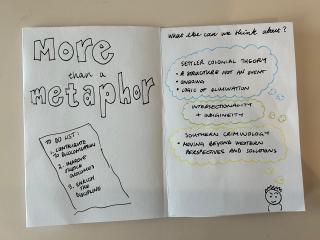 MORE
than a
metaphor
TO DO LIST:
1. CONTRIBUTE
TO DECOLONISATION
2. IMPROVE
JUSTICE
OUTCOMES
3. ENRICH
THE
DISCIPLINE
What else can we think about?
SETTLER COLONIAL THEORY
• A STRUCTURE NOT AN EVENT
• ONGOING
• LOGIC OF ELIMINATION
INTERSECTIONALITY
+ INDIGENEITY
SOUTHERN CRIMINOLOGY
• MOVING BEYOND WESTERN
PERSPECTIVES AND SOLUTIONS